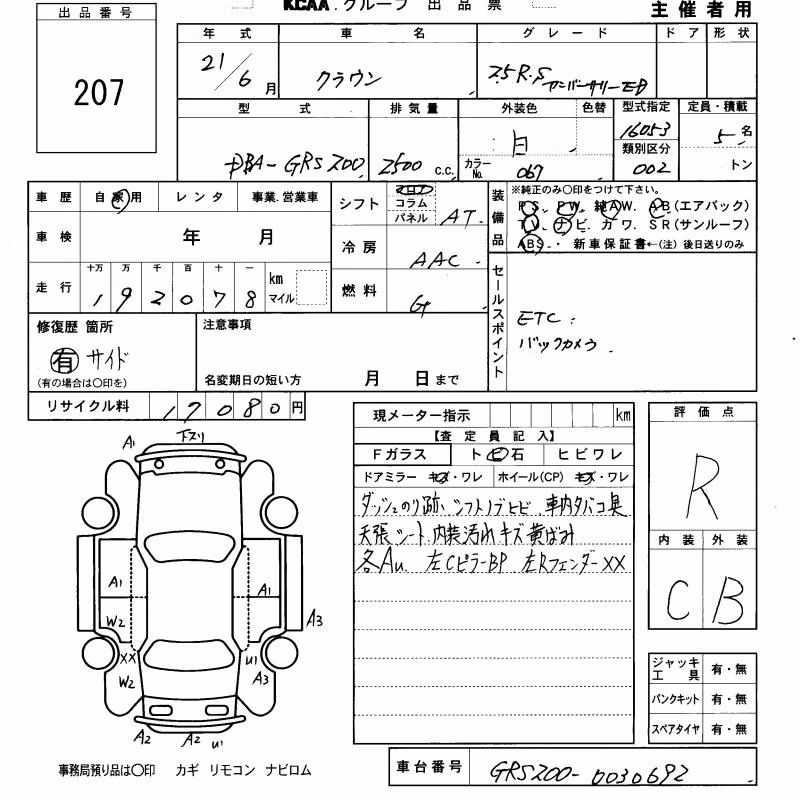 KCAA.グループ 出品票
主催者用
出品番号
207
年式 車名 グレード ドア 形状
21/6月 クラウン 2.5R.S アニバーサリーED
型式 排気量 外装色 色替 型式指定 定員・積載
DBA-GRS200 2500 c.c. 白 カラーNo. 067 16053 5名
類別区分
002 トン
車歴 自家用 レンタ 事業.営業車
シフト フロア コラム パネル AT
装備品 ※純正のみ○印をつけて下さい。
P S. P W. 純A W. A B(エアバック)
T V. ナ ビ. カ ワ. S R(サンルーフ)
A B S. ・ 新車保証書←(注) 後日送りのみ
車検 年 月
冷房 AAC
走行 十万 万 千 百 十 一 km マイル
192078
燃料 G
セールスポイント
ETC.
バックカメラ
修復歴 箇所
有 サイド
(有の場合は○印を)
注意事項
名変期日の短い方 月 日まで
リサイクル料 17080円
現メーター指示 km
【査定員記入】
Fガラス ト ビ 石 ヒビワレ
ドアミラー キズ・ワレ ホイール(CP) キズ・ワレ
ダッシュのり跡 シフトノブヒビ 車内タバコ臭
天張シート内装汚れキズ黄ばみ
各AU 左CピラーBP 左Rフェンダー XX
評価点
R
内装 外装
C B
ジャッキ工具 有・無
パンクキット 有・無
スペアタイヤ 有・無
A1 下スリ
A1 A1
W2 A3
XX U1
W2 A3
A2 A2 U1
事務局預り品は○印 カギ リモコン ナビロム
車台番号 GRS200-0030692